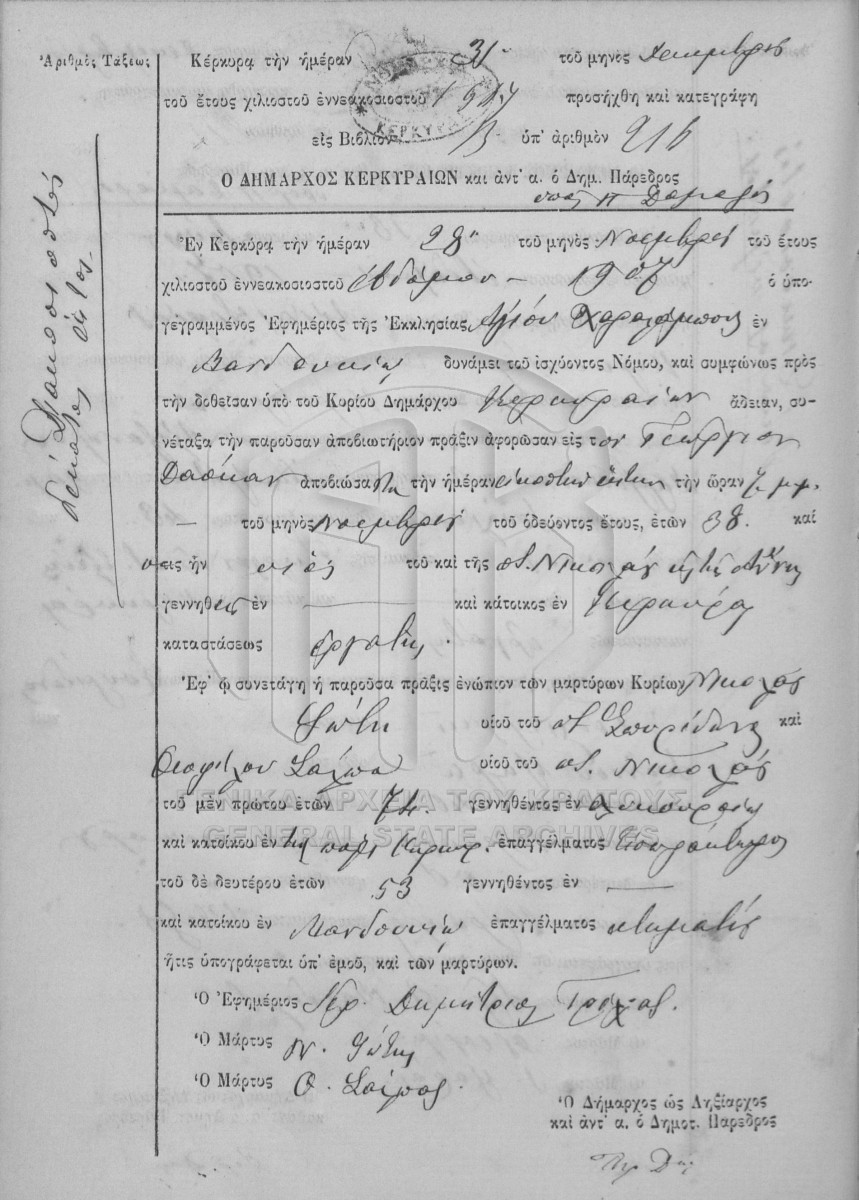 Ἀριθμὸς Τάξεως
Κέρκυρα τὴν ἡμέραν 31 τοῦ μηνὸς Δεκεμβρίου
τοῦ ἔτους χιλιοστοῦ ἐννεακοσιοστοῦ 1907 προσήχθη καὶ κατεγράφη
εἰς Βιβλίον Β ὑπ' ἀριθμὸν 216
Ο ΔΗΜΑΡΧΟΣ ΚΕΡΚΥΡΑΙΩΝ καὶ ἀντ' α. ὁ Δημ. Πάρεδρος
Ἐν Κερκύρᾳ τὴν ἡμέραν 28 τοῦ μηνὸς Νοεμβρίου τοῦ ἔτους
χιλιοστοῦ ἐννεακοσιοστοῦ ἑβδόμου – 1907 ὁ ὑπο-
γεγραμμένος Ἐφημέριος τῆς Ἐκκλησίας Ἁγίου Χαραλάμπους ἐν
Μανδουκίῳ δυνάμει τοῦ ἰσχύοντος Νόμου, καὶ συμφώνως πρὸς
τὴν δοθεῖσαν ὑπὸ τοῦ Κυρίου Δημάρχου Κερκυραίων ἄδειαν, συ-
νέταξα τὴν παροῦσαν ἀποβιωτήριον πρᾶξιν ἀφορῶσαν εἰς τον Γεώργιον
ἀποβιώσαντα τὴν ἡμέραν εἰκοστὴν ἕκτην τὴν ὥραν 7 μ.μ.
– τοῦ μηνὸς Νοεμβρίου τοῦ ὁδεύοντος ἔτους, ἐτῶν 38. καί
ὅστις ἦν υἱὸς τοῦ καὶ τῆς ποτ. Νικολάου
γεννηθεὶς ἐν — καὶ κάτοικος ἐν Κερκύρᾳ
καταστάσεως ἐργάτης.
Ἐφ' ᾧ συνετάγη ἡ παροῦσα πρᾶξις ἐνώπιον τῶν μαρτύρων Κυρίων Νικολάου
Φώτη υἱοῦ τοῦ ποτ. Σπυρίδωνος καὶ
Θεοφίλου υἱοῦ τοῦ ποτ. Νικολάου
τοῦ μὲν πρώτου ἐτῶν 74. γεννηθέντος ἐν
καὶ κατοίκου ἐν τῇ πόλει Κερκύρ. ἐπαγγέλματος
τοῦ δὲ δευτέρου ἐτῶν 53 γεννηθέντος ἐν —
καὶ κατοίκου ἐν Μανδουκίῳ ἐπαγγέλματος κτηματίας
ἥτις ὑπογράφεται ὑπ' ἐμοῦ, καὶ τῶν μαρτύρων.
Ὁ Ἐφημέριος Ἱερ. Δημήτριος
Ὁ Μάρτυς Ν. Φώτης
Ὁ Μάρτυς Θ.
Ὁ Δήμαρχος ὡς Ληξίαρχος
καὶ ἀντ' α. ὁ Δημοτ. Πάρεδρος
ΓΕΝΙΚΑ ΑΡΧΕΙΑ ΤΟΥ ΚΡΑΤΟΥΣ
GENERAL STATE ARCHIVES